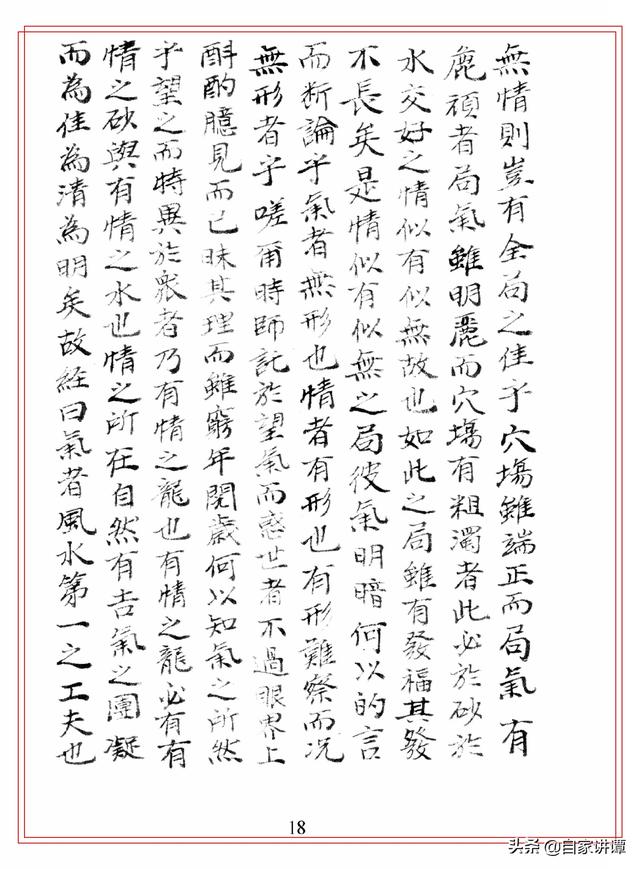 無情則豈有全局之佳乎穴塲雖端正而局氣有
鹿頑者局氣雖明麗而穴塲有粗濁者此必於砂於
水交好之情似有似無故也如此之局雖有發福其發
不長矣是情似有似無之局彼氣明暗何以的言
而断論乎氣者無形也情者有形也有形難察而况
無形者乎嗟爾時師託於望氣而惑世者不過眼界上
酙酌臆見而已昧其理而雖窮年閱歲何以知氣之所然
乎望之而特異於衆者乃有情之龍也有情之龍必有有
情之砂與有情之水也情之所在自然有吉氣之團凝
而為佳為清為明矣故経曰氣者風水第一之工夫也
18
头条 @自家讲谭